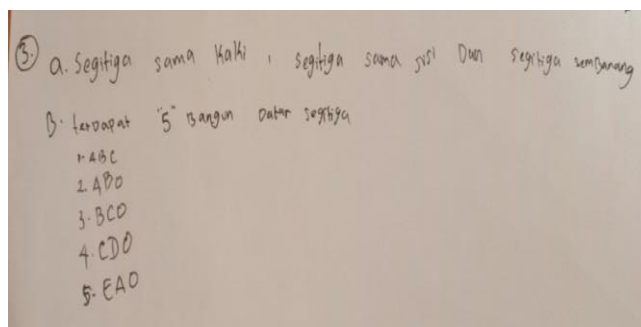 3. a. Segitiga sama kaki, segitiga sama sisi Dan segitiga sembarang
B. terdapat "5" Bangun Datar segitiga
1. ABC
2. ABO
3. BCO
4. CDO
5. EAO